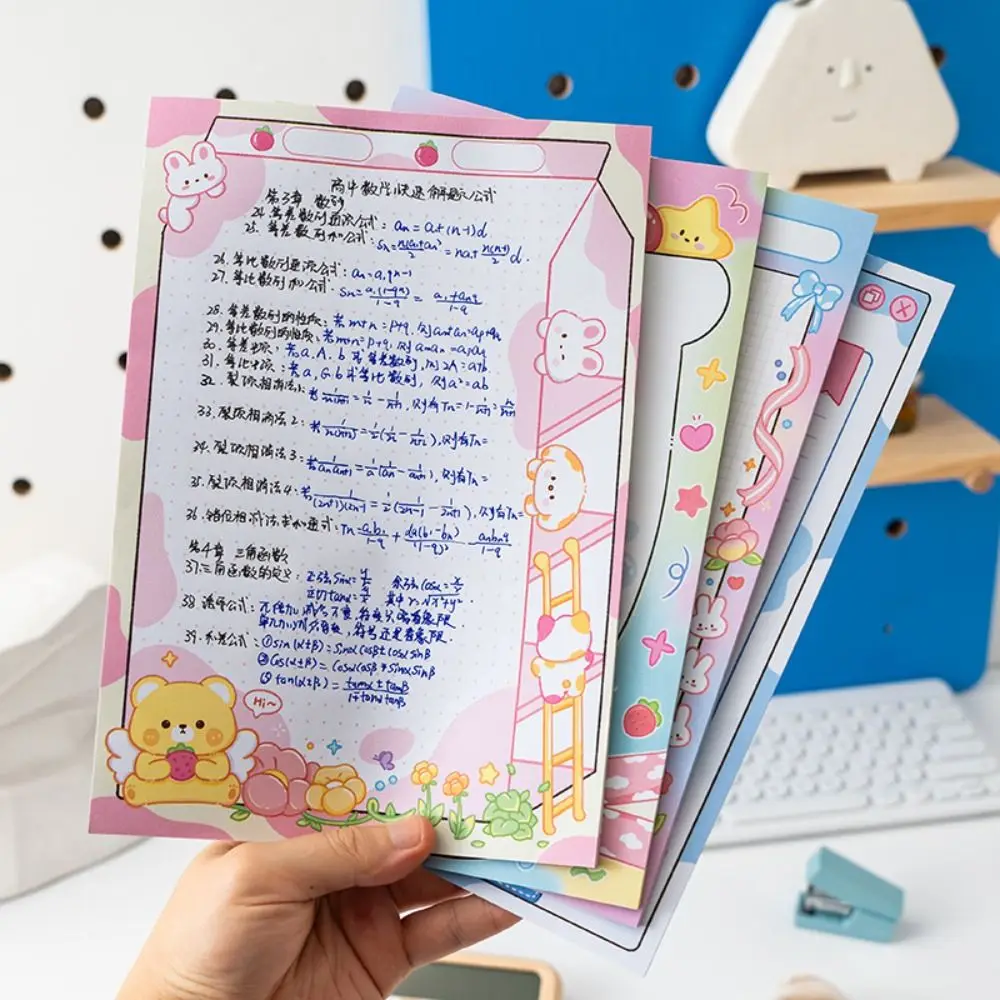 高中数学快速解题公式
第3章 数列
24. 等差数列通项公式: an = a1+(n-1)d
25. 等差数列和公式: Sn = n(a1+an)/2 = na1+ n(n-1)/2 d.
26. 等比数列通项公式: an=a1qn-1
27. 等比数列和公式: Sn= a1(1-qn)/1-q = a1+anq/1-q
28. 等差数列的性质: 若m+n=p+q, 则am+an=ap+aq
29. 等比数列的性质: 若m+n=p+q, 则aman=apaq
30. 等差中项: 若a, A, b成等差数列, 则2A=a+b
31. 等比中项: 若a, G, b成等比数列, 则a²=ab
32. 裂项相消法1: 若 1/n(n+1) = 1/n - 1/n+1, 则有Tn=1-1/n+1=n/n+1
33. 裂项相消法2: 若 1/n(n+2) = 1/2(1/n - 1/n+2), 则有Tn=
34. 裂项相消法3: 若 1/anan+1 = 1/d(1/an - 1/an+1), 则有Tn=
35. 裂项相消法4: 若 1/(2n+1)(2n-1 = 1/2(1/2n-1 - 1/2n+1), 则有Tn=
36. 错位相减法求和通式: Tn = a1b1/1-q + d(b1-bn)/(1-q)² - anbnq/1-q
第4章 三角函数
37. 三角函数的定义: 正弦sinα=y/r 余弦cosα=x/r
正切tanα=y/x 其中r=√x²+y²
38. 诱导公式: π倍加减名不变, 符号只需看象限.
半π加减名要变, 符号还是看象限.
39. 和差公式: ①sin(α±β)=sinαcosβ±cosαsinβ
②cos(α±β)=cosαcosβ∓sinαsinβ
③tan(α±β)= tanα±tanβ/1∓tanαtanβ
Hi~